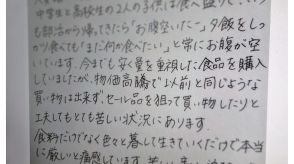 中学生と高校生の2人の子供は食べ盛りで、いつ
も部活から帰ってきたら「お腹空いたー」夕飯をしっ
かり食べても「まだ何か食べたい」と常にお腹が空
いています。今までも安く量を重視した食品を購入
していましたが、物価高騰で以前と同じような
買い物は出来ず、セール品を狙って買い物したりと
工夫してもとても苦しい状況にあります。
食料だけでなく色々と暮して生きていくだけで本当
に厳しいと痛感しています。